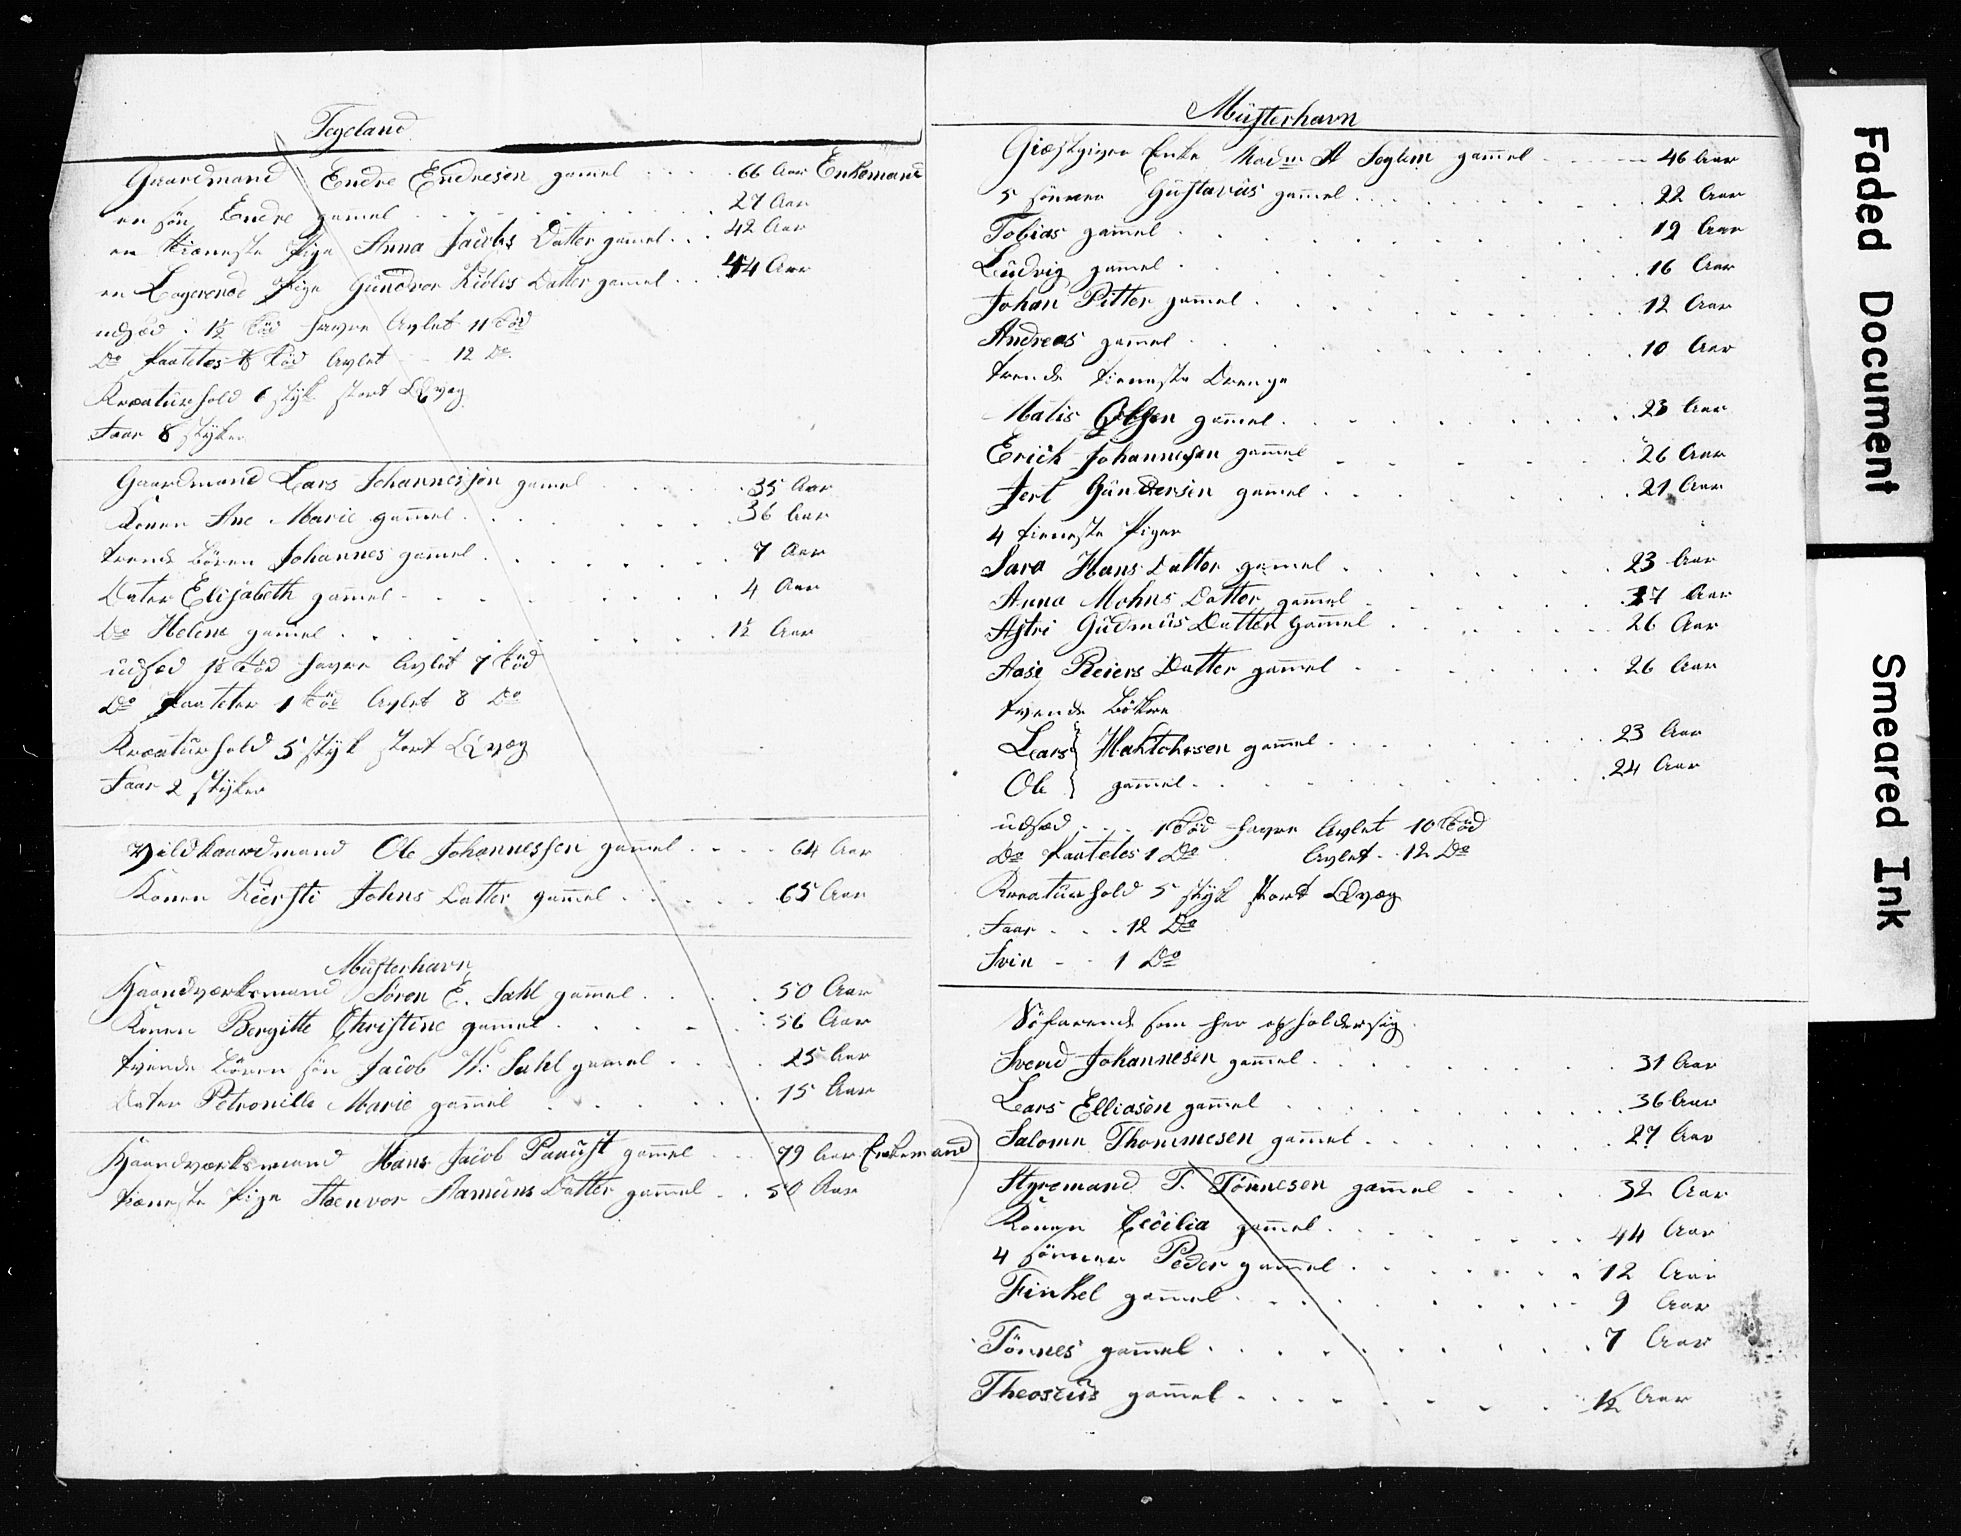 Tegeland
Gaardmand Endre Endresen gam̄el . . . . 66 Aar Enkemand
en sön Endre gam̄el . . . . 27 Aar
en tieneste Pige Anna Jacobs Datter gam̄el . . . 42 Aar
en Logerende Pige Gundvor Datter gam̄el . . 44 Aar
udsæd 1½ Töd Havre Avlet 11 Töd
Do Paateter Töd Avlet 12 Do
Kreaturhold 6 styk stort Qvæg
Faar 8 styker
Gaardmand Lars Johannessen gam̄el . . . . 35 Aar
Konen Ane Marie gam̄el . . . . 36 Aar
trende Bören Johannes gam̄el . . . . 7 Aar
Dater Elisabeth gam̄el . . . . 4 Aar
Do Helene gam̄el . . . . 1½ Aar
udsæd 1½ Töd Havre Avlet 7 Töd
Do Paateter 1 Töd Avlet 8 Do
Kreaturhold 5 styk stort Qvæg
Faar 2 styker
Vildkaardmand Ole Johannessen gam̄el . . . . 64 Aar
Konen Kiersti Johns Datter gam̄el . . . . 65 Aar
Musterhavn
Haandværksmand Sören E. Sahl gam̄el . . . . 50 Aar
Konen Bergitte Christine gam̄el . . . . 56 Aar
tvende Bören sön Jacob H: Sahl gam̄el . . . . 25 Aar
Dater Petronille Marie gam̄el . . . . 15 Aar
Haandværksmand Hans Jacob gam̄el . . . 79 Aar Enkemand
tieneste Pige Datter gam̄el . . 50 Aar
Müsterhavn
Giæstgiver Enke Madm A Seglem gam̄el . . . . 46 Aar
5 sönner Güstavüs gam̄el . . . . 22 Aar
Tobias gam̄el . . . . 19 Aar
Ludvig gam̄el . . . . 16 Aar
Johan Pitter gam̄el . . . . 12 Aar
Andreas gam̄el . . . . 10 Aar
trende tieneste Drenge
Matis gam̄el . . . . 23 Aar
Erick Johannesen gam̄el . . . . 26 Aar
Jert Gundersen gam̄el . . . . 21 Aar
4 tieneste Piger
Sara Hans Datter gam̄el . . . . 23 Aar
Anna Mohns Datter gam̄el . . . . 37 Aar
Astri Gudmus Datter gam̄el . . . . 26 Aar
Aase Reiers Datter gam̄el . . . . 26 Aar
tvende Bökere
Lars } gam̄el . . . . 23 Aar
Ole } gam̄el . . . . 24 Aar
udsæd . . . 1 Töd Havre Avlet 10 Töd
Do Paateter 1 Do Avlet . . 12 Do
Kreaturhold 5 styk stort Qvæg
Faar . . . 12 Do
Svin . . 1 Do
Söfarende som her opholder sig
Svend Johannesen gam̄el . . . . 31 Aar
Lars Elliasen gam̄el . . . . 36 Aar
Salomn Thommesen gam̄el . . . . 27 Aar
Styremand T. Tönnesen gam̄el . . . . 32 Aar
Konen Cecilia gam̄el . . . . 44 Aar
4 sönner Peder gam̄el . . . . 12 Aar
Finkel gam̄el . . . . 9 Aar
Tönnes gam̄el . . . . 7 Aar
gam̄el . . . . ½ Aar
Faded Document
Smeared Ink